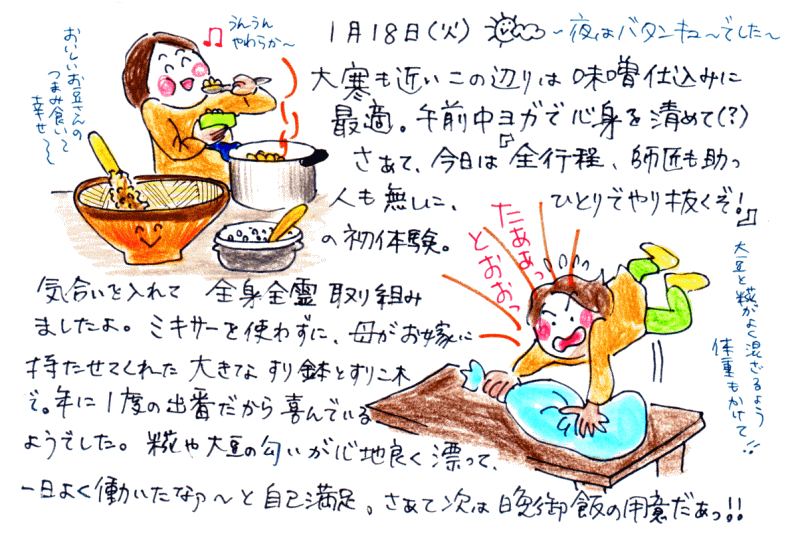 1月18日(火)
~夜はバタンキュ〜でした~
うんうん
やわらか〜
おいしいお豆さんの
つまみ食いで
幸せ〜〜
大寒も近いこの辺りは 味噌仕込みに
最適。午前中ヨガで心身を清めて(?)
さあて、今日は『全行程、師匠も助っ
人も無しに、ひとりでやり抜くぞ!』
の初体験。
たああっ
とおおっ
大豆と糀がよく混ざるよう
体重もかけて!!
気合いを入れて 全身全霊 取り組み
ましたよ。ミキサーを使わずに、母がお嫁に
持たせてくれた 大きな すり鉢とすりこ木
で。年に1度の出番だから 喜んでいる
ようでした。糀や大豆の匂いが心地良く漂って、
一日よく働いたなァ〜と自己満足。さあて次は晩御飯の用意だあっ!!